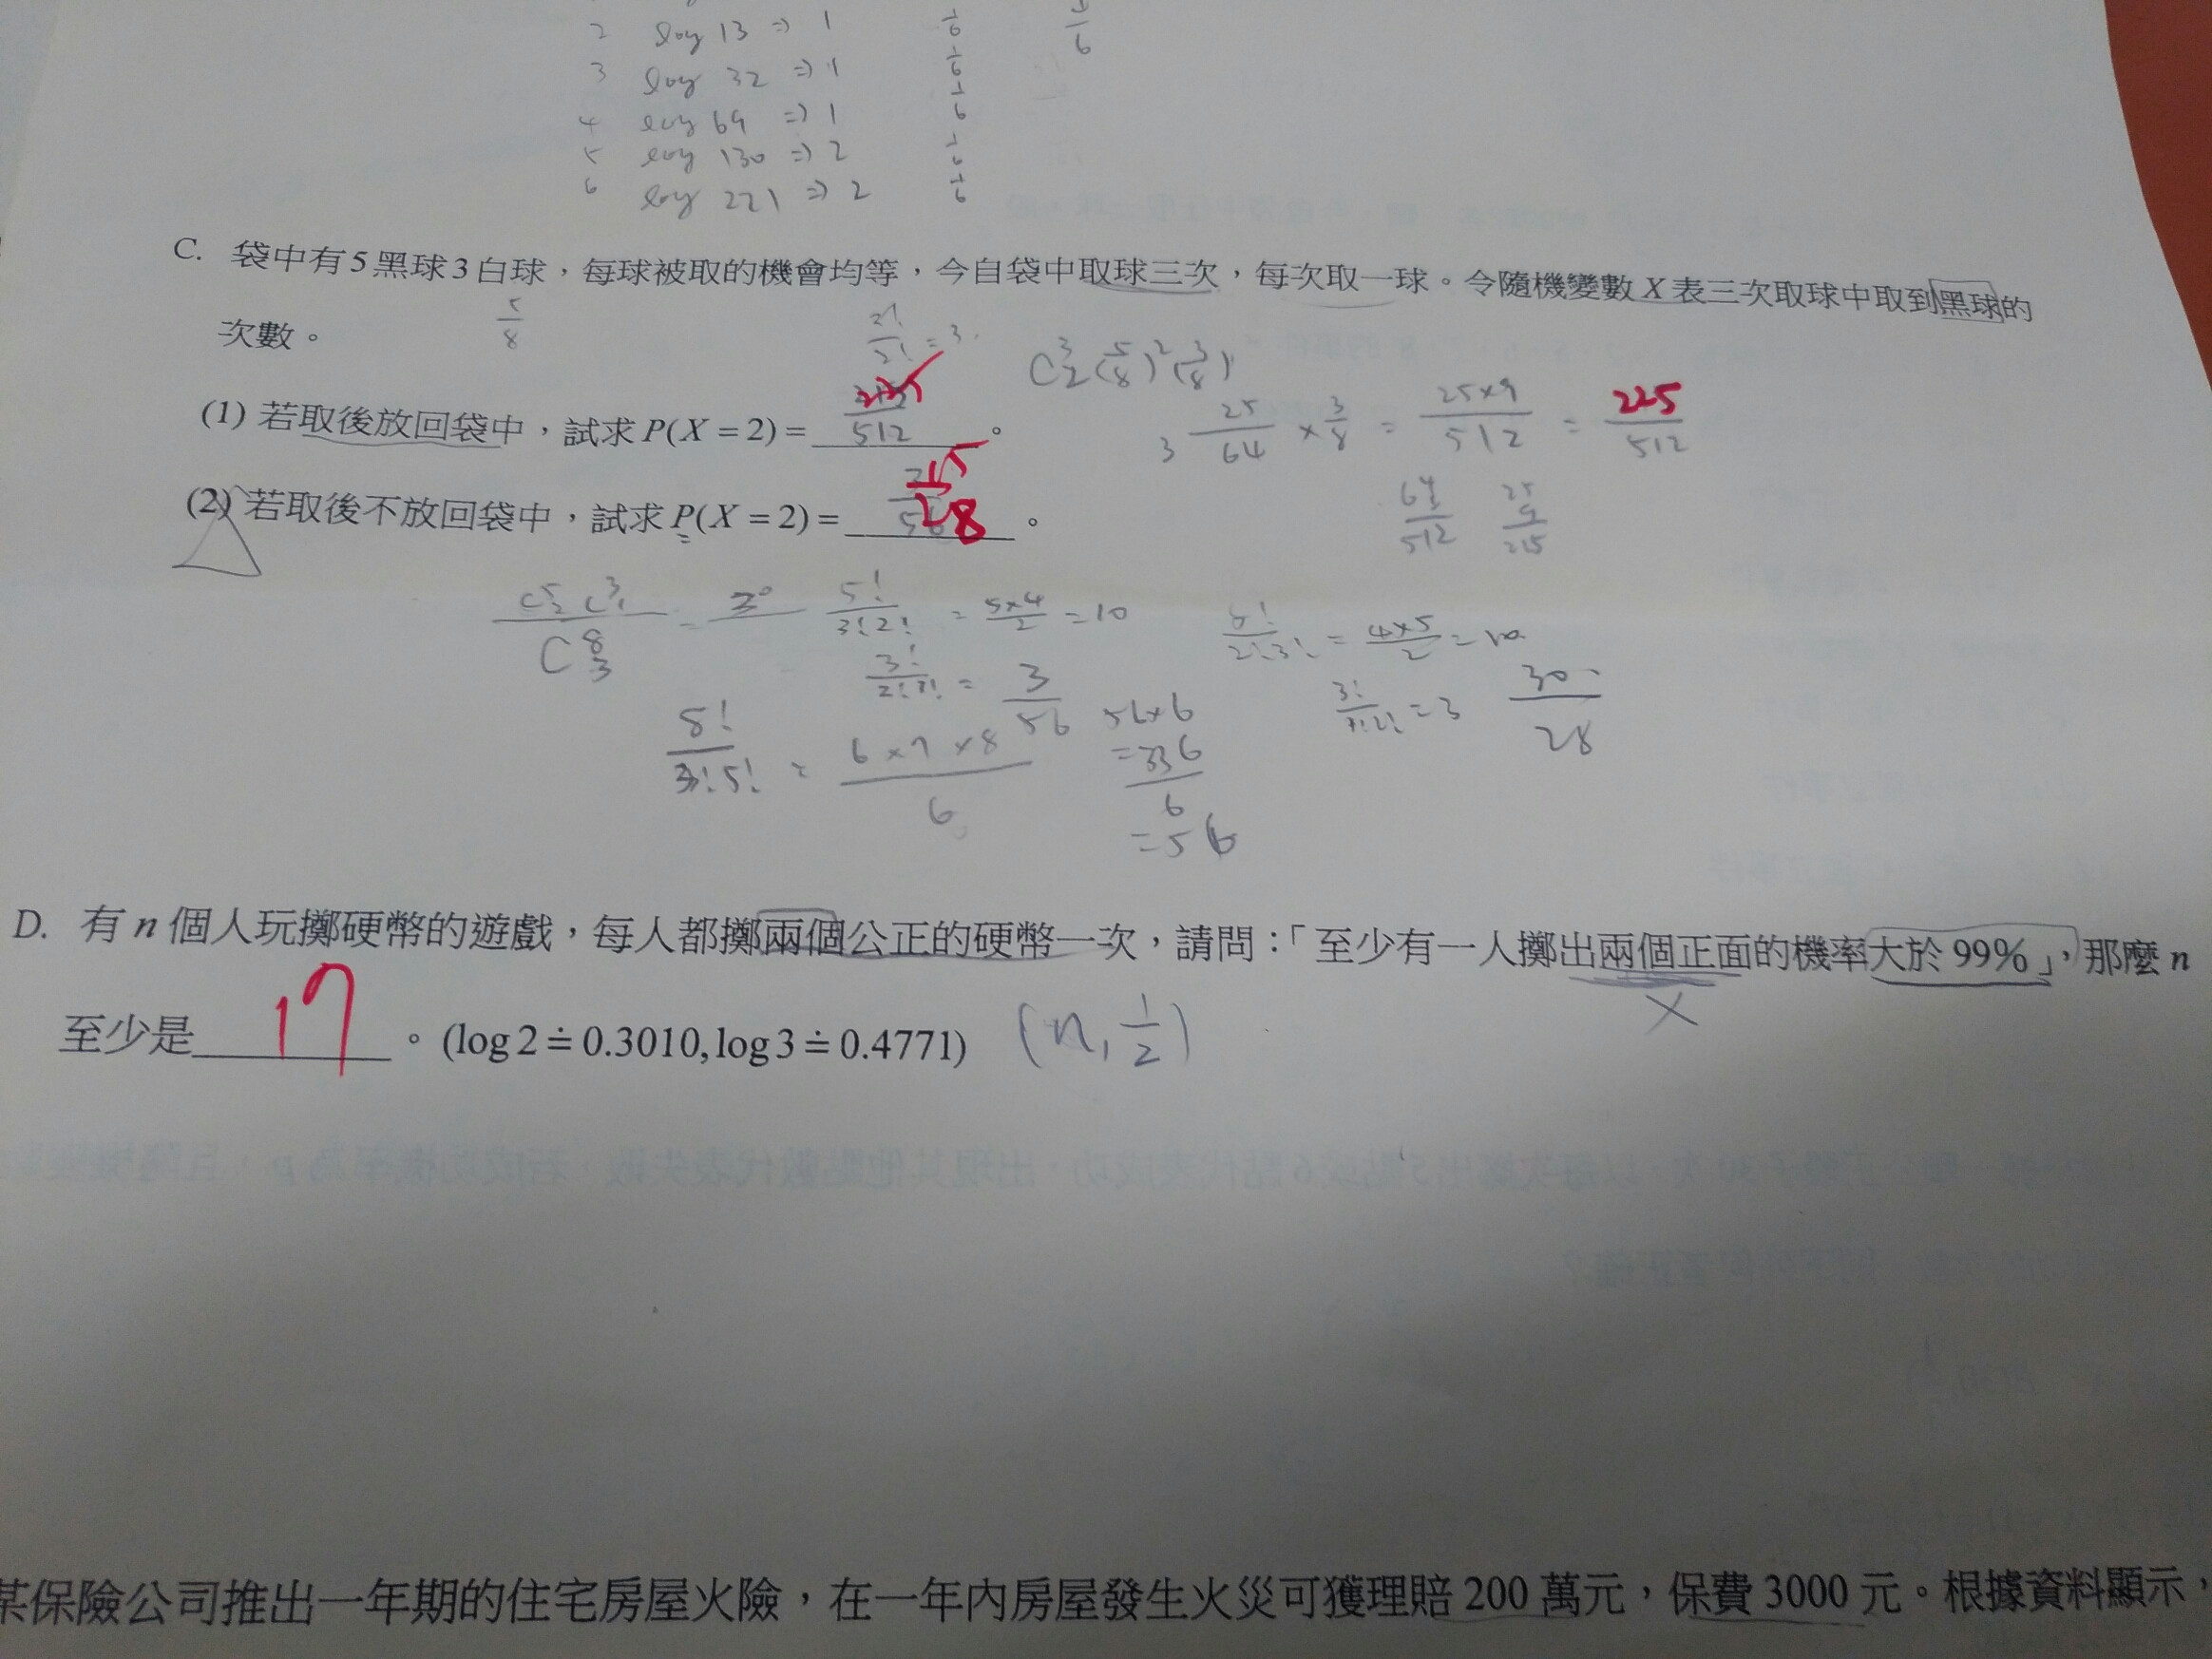 2 log 13 => 1 1/6
3 log 32 => 1 1/6
4 log 69 => 1 1/6
5 log 130 => 2 1/6
6 log 221 => 2 1/6
C. 袋中有5黑球3白球，每球被取的機會均等，今自袋中取球三次，每次取一球。令隨機變數 X 表三次取球中取到黑球的
次數。
5/8
C³₂(5/8)²(3/8)
(1) 若取後放回袋中，試求 P(X = 2) = 225/512 。
3 25/64 × 3/8 = 25×9/512 = 225/512
(2) 若取後不放回袋中，試求 P(X = 2) = 15/28 。
64/512
C⁵₂C³₁/C⁸₃ = 30
5!/3!2! = 5×4/2 = 10
= 4×5/2 = 10
3!/2!1! = 3/56
3!/1!2! = 3
30/28
8!/3!5! = 6×7×8/6
56×6
=336/6
=56
D. 有 n 個人玩擲硬幣的遊戲，每人都擲兩個公正的硬幣一次，請問：「至少有一人擲出兩個正面的機率大於 99%」，那麼 n
至少是 17 。(log 2 ≐ 0.3010, log 3 ≐ 0.4771) (n, 1/2)
X
某保險公司推出一年期的住宅房屋火險，在一年內房屋發生火災可獲理賠 200 萬元，保費 3000 元。根據資料顯示，